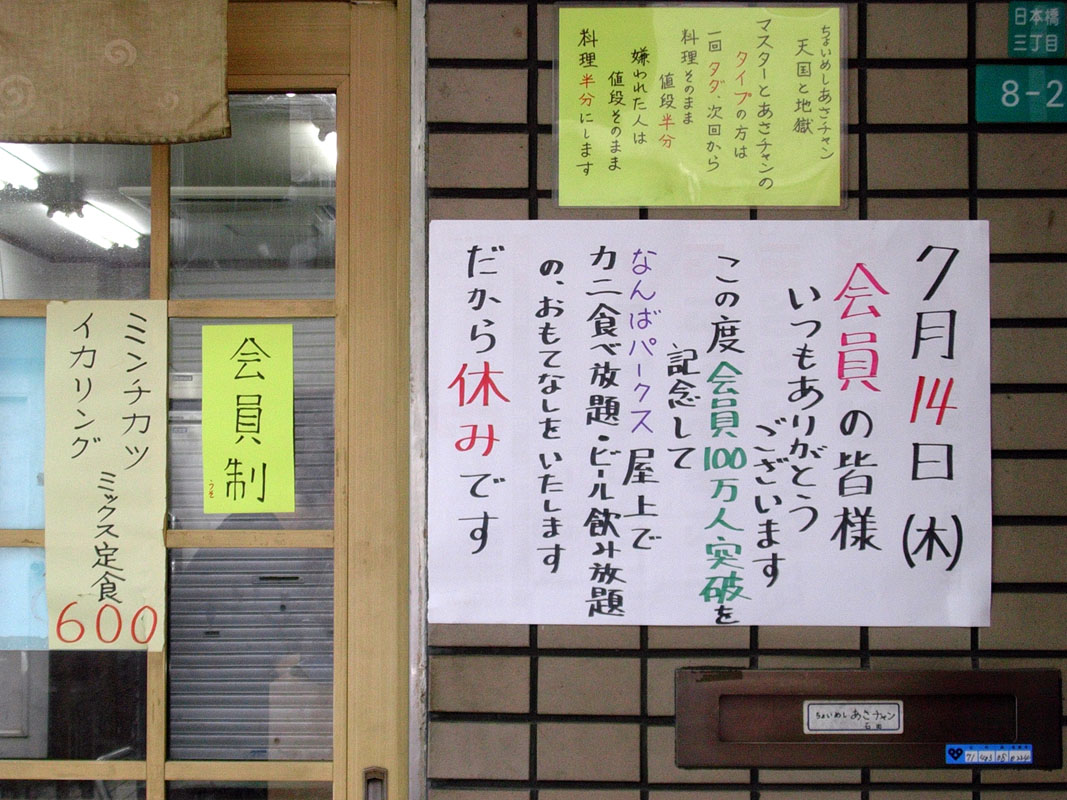 ちょいめしあさチャン
天国と地獄
マスターとあさチャンの
タイプの方は
一回タダ、次回から
料理そのまま
値段半分
嫌われた人は
値段そのまま
料理半分にします
日本橋
三丁目
8-2
7月14日(木)
会員の皆様
いつもありがとう
ございます
この度会員100万人突破を
記念して
なんばパークス屋上で
カニ食べ放題・ビール飲み放題
の、おもてなしをいたします
だから休みです
会員制
ミンチカツ
イカリング
ミックス定食
600
ちょいめしあさチャン